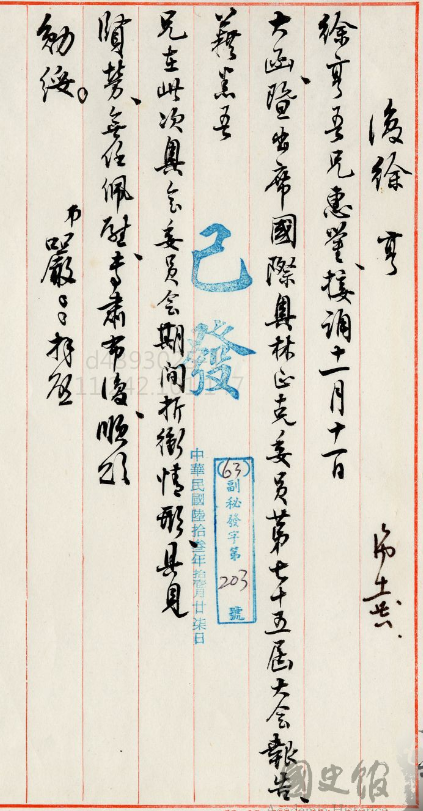 復徐亨
徐亨吾兄惠鑒、接誦十一月十一日
大函、暨出席國際奧林匹克委員第七十五屆大會報告、
藉悉吾
兄在此次奧會委員會期間折衝情形、具見
賢勞、無任佩慰、專肅布復、順頌
勛綏。
弟嚴
拜啓
已發
(63)副秘發字第203號
中華民國陸拾叁年拾壹月廿柒日
國史館